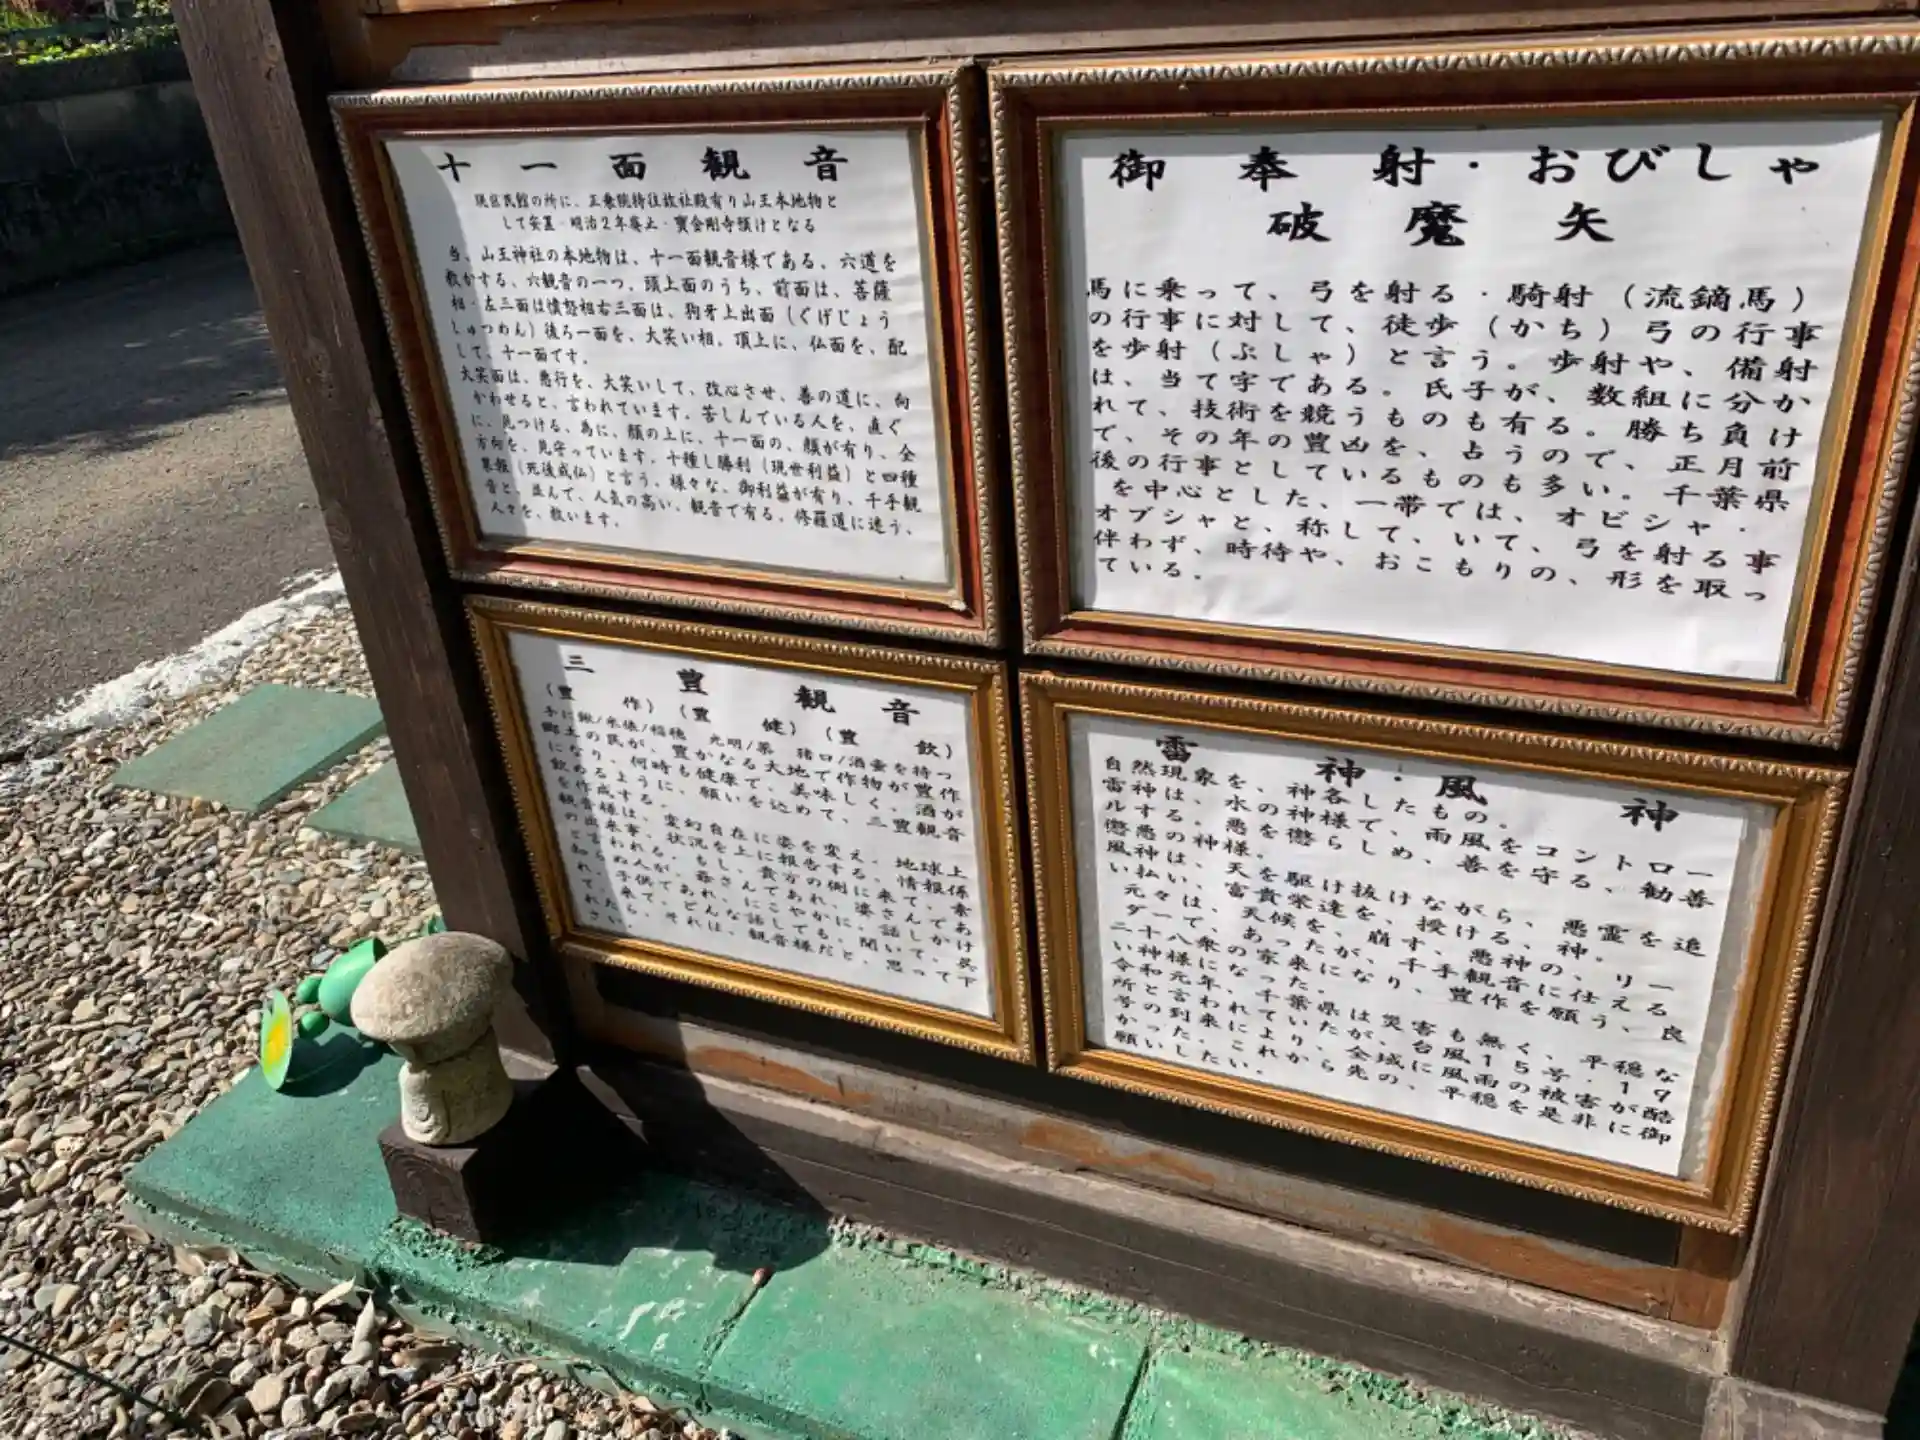 十一面観音
現区民館の所に、正乗院特往故社殿有り山王本地物と
して安置・明治2年廃止・寶金剛寺預けとなる
当、山王神社の本地物は、十一面観音様である、六道を
救かする、六観音の一つ、頭上面のうち、前面は、菩薩
相・左三面は憤怒相右三面は、狗牙上出面(くげじょう
しゅつめん)後ろ一面を、大笑い相、頂上に、仏面を、配
して、十一面です。
大笑面は、悪行を、大笑いして、改心させ、善の道に、向
かわせると、言われています。苦しんでいる人を、直ぐ
に、見つける、為に、顔の上に、十一面の、顔が有り、全
方向を、見守っています。十種し勝利(現世利益)と四種
果報(死後成仏)と言う、様々な、御利益が有り、千手観
音と、並んで、人気の高い、観音で有る。修羅道に迷う、
人々を、救います。
御奉射・おびしゃ
破魔矢
馬に乗って、弓を射る・騎射(流鏑馬)
の行事に対して、徒歩(かち)弓の行事
を歩射(ぶしゃ)と言う。歩射や、備射
は、当て字である。氏子が、数組に分か
れて、技術を競うものも有る。勝ち負け
で、その年の豊凶を、占うので、正月前
後の行事としているものも多い。千葉県
を中心とした、一帯では、オビシャ・
オブシャと、称して、いて、弓を射る事
伴わず、時待や、おこもりの、形を取っ
ている。
三豊観音
(豊作)(豊健)(豊飲)
手に鍬/米俵/稲穂 光明/薬 猪口/酒壷を持つ
郷土の民が、豊かなる大地で作物が豊作
になり、何時も健康で、美味しく、酒が
飲めるように、願いを込めて、三豊観音
を作成する。
観音様は、変幻自在に姿を変え、地球上
の出来事、状況を上に報告する、情報係
と言われる。もし、貴方の側に、来て、素
知らぬ人が、爺さんであれ、婆さんであ
れ、子供であれ、にこやかに、話しかけ
て、来て、どんな話しでも、聞いて、呉
れたら、それは、観音様だと、思って下
さい。
雷神・風神
自然現象を、神各したもの。
雷神は、水の神様で、雨風をコントロー
ルする。悪を懲らしめ、善を守る、勧善
懲悪の神様。
風神は、天を駆け抜けながら、悪霊を追
い払い、富貴栄達を、授ける、神。
元々は、天候を、崩す、悪神の、リー
ダーで、あったが、千手観音に仕える
二十八衆の家来になり、豊作を願う、良
い神様になった。
令和元年、千葉県は災害も無く、平穏な
所と言われていたが、台風15号・19
号の到来により、全域に風雨の被害が酷
かった。これから先の、平穏を是非に御
願いしたい。